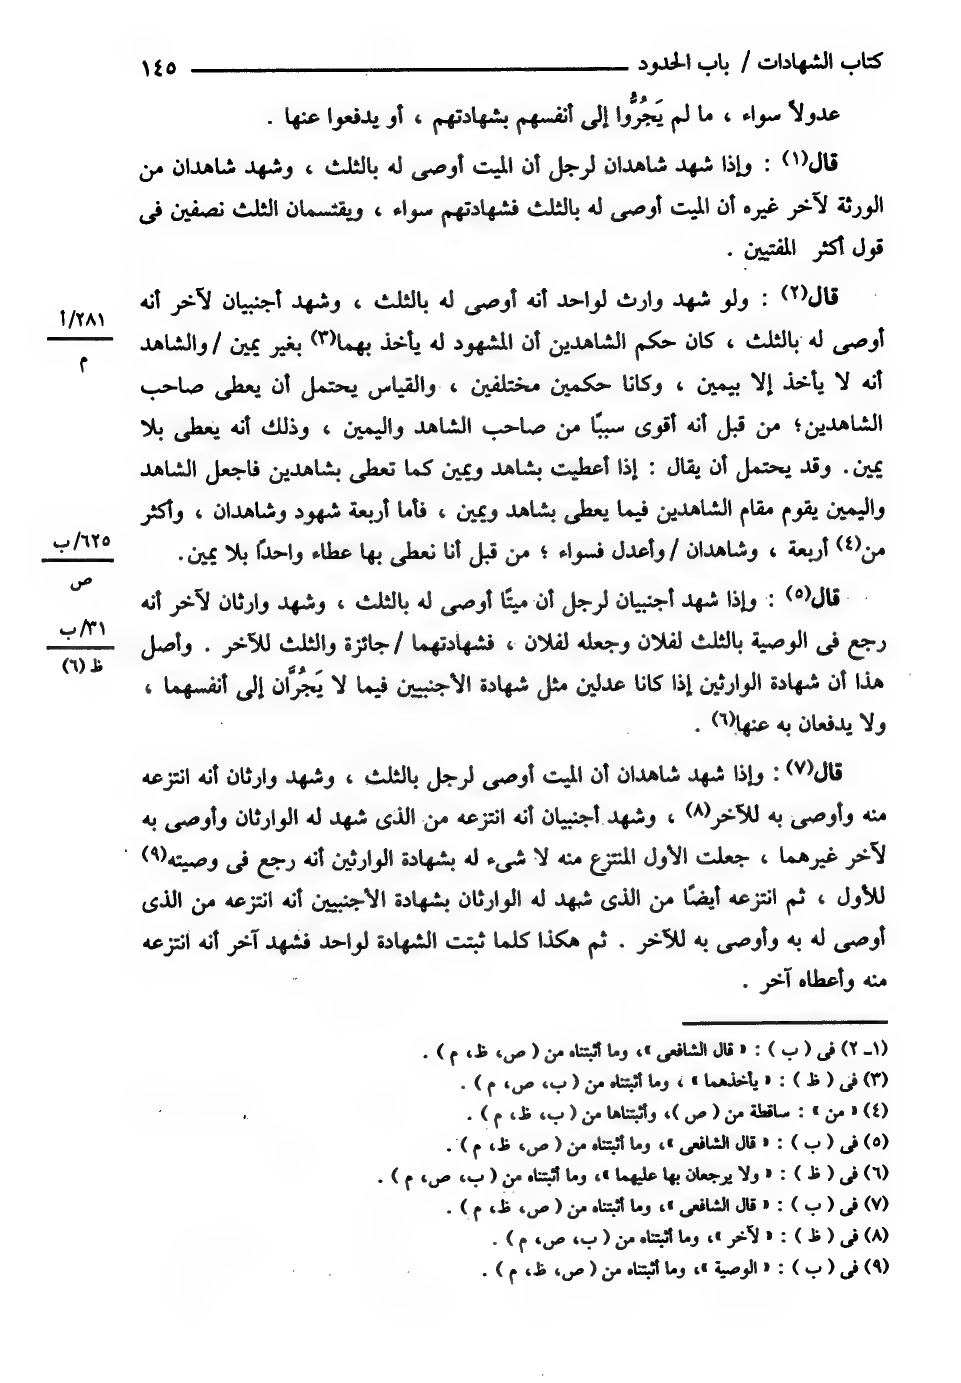 كتاب الشهادات / باب الحدود ١٤٥
عدولاً سواء ، ما لم يَجُرُّوا إلى أنفسهم بشهادتهم ، أو يدفعوا عنها .
قال(١) : وإذا شهد شاهدان لرجل أن الميت أوصى له بالثلث ، وشهد شاهدان من
الورثة لآخر غيره أن الميت أوصى له بالثلث فشهادتهم سواء ، ويقتسمان الثلث نصفين فى
قول أكثر المفتيين .
قال(٢) : ولو شهد وارث لواحد أنه أوصى له بالثلث ، وشهد أجنبيان لآخر أنه
أوصى له بالثلث ، كان حكم الشاهدين أن المشهود له يأخذ بهما(٣) بغير يمين / والشاهد
٢٨١/أ
م
أنه لا يأخذ إلا بيمين ، وكانا حكمين مختلفين ، والقياس يحتمل أن يعطى صاحب
الشاهدين؛ من قبل أنه أقوى سببًا من صاحب الشاهد واليمين ، وذلك أنه يعطى بلا
يمين. وقد يحتمل أن يقال : إذا أعطيت بشاهد ويمين كما تعطى بشاهدين فاجعل الشاهد
واليمين يقوم مقام الشاهدين فيما يعطى بشاهد ويمين ، فأما أربعة شهود وشاهدان ، وأكثر
من(٤) أربعة ، وشاهدان / وأعدل فسواء ؛ من قبل أنا نعطى بها عطاء واحدًا بلا يمين.
٦٢٥/ب
ص
قال(٥) : وإذا شهد أجنبيان لرجل أن ميتًا أوصى له بالثلث ، وشهد وارثان لآخر أنه
رجع فى الوصية بالثلث لفلان وجعله لفلان ، فشهادتهما / جائزة والثلث للآخر . وأصل
٣١/ب
ظ (٦)
هذا أن شهادة الوارثين إذا كانا عدلين مثل شهادة الأجنبيين فيما لا يَجُرَّان إلى أنفسهما ،
ولا يدفعان به عنها(٦) .
قال(٧) : وإذا شهد شاهدان أن الميت أوصى لرجل بالثلث ، وشهد وارثان أنه انتزعه
منه وأوصى به للآخر(٨) ، وشهد أجنبيان أنه انتزعه من الذى شهد له الوارثان وأوصى به
لآخر غيرهما ، جعلت الأول المنتزع منه لا شىء له بشهادة الوارثين أنه رجع فى وصيته(٩)
للأول ، ثم انتزعه أيضًا من الذى شهد له الوارثان بشهادة الأجنبيين أنه انتزعه من الذى
أوصى له به وأوصى به للآخر . ثم هكذا كلما ثبتت الشهادة لواحد فشهد آخر أنه انتزعه
منه وأعطاه آخر .
(١ـ ٢) فى ( ب ) : « قال الشافعى »، وما أثبتناه من ( ص، ظ، م ) .
(٣) فى ( ظ ) : « يأخذهما » ، وما أثبتناه من ( ب، ص، م ) .
(٤) « من » : ساقطة من ( ص )، وأثبتناها من ( ب، ظ، م ) .
(٥) فى ( ب ) : « قال الشافعى »، وما أثبتناه من ( ص، ظ، م ) .
(٦) فى ( ظ ) : « ولا يرجعان بها عليهما »، وما أثبتناه من ( ب، ص، م ) .
(٧) فى ( ب ) : « قال الشافعى »، وما أثبتناه من ( ص، ظ، م ) .
(٨) فى ( ظ ) : « لآخر »، وما أثبتناه من ( ب، ص، م ) .
(٩) فى ( ب ) : « الوصية »، وما أثبتناه من ( ص، ظ، م ) .